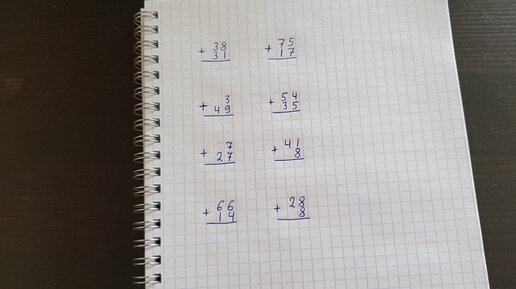 + 38 + 75
31 17
+ 3 + 54
49 35
+ 7 + 41
27 8
+ 66 + 28
14 8